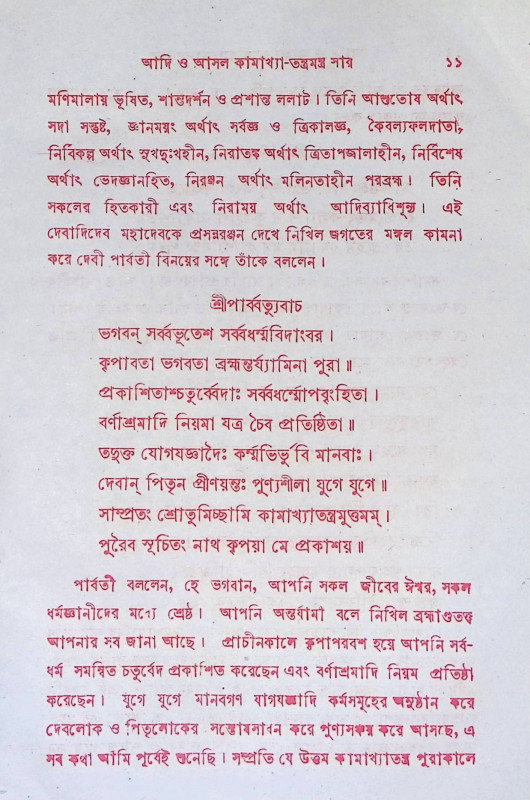 আদি ও আসল কামাখ্যা-তন্ত্রমন্ত্র সার ১১
মণিমালায় ভূষিত, শান্তদর্শন ও প্রশান্ত ললাট। তিনি আশুতোষ অর্থাৎ
সদা সন্তুষ্ট, জ্ঞানময়ং অর্থাৎ সর্বজ্ঞ ও ত্রিকালজ্ঞ, কৈবল্যফলদাতা,
নির্বিকল্প অর্থাৎ সুখদুঃখহীন, নিরাতঙ্ক অর্থাৎ ত্রিতাপজালাহীন, নির্বিশেষ
অর্থাৎ ভেদজ্ঞানহিত, নিরঞ্জন অর্থাৎ মলিনতাহীন পরব্রহ্ম। তিনি
সকলের হিতকারী এবং নিরাময় অর্থাৎ আদিব্যাধিশূন্য। এই
দেবাদিদেব মহাদেবকে প্রসন্নরঞ্জন দেখে নিখিল জগতের মঙ্গল কামনা
করে দেবী পার্বতী বিনয়ের সঙ্গে তাঁকে বললেন।
শ্রীপার্ব্বত্যুবাচ
ভগবন্ সর্ব্বভূতেশ সর্ব্বধর্ম্মবিদাংবর।
কৃপাবতা ভগবতা ব্রহ্মন্তর্য্যামিনা পুরা॥
প্রকাশিতাশ্চতুর্ব্বেদাঃ সর্ব্বধর্ম্মোপবৃংহিতা।
বর্ণাশ্রমাদি নিয়মা যত্র চৈব প্রতিষ্ঠিতা॥
তদুক্ত যোগযজ্ঞাদৈঃ কর্ম্মভির্ভুবি মানবাঃ।
দেবান্ পিতৃন প্রীণয়ন্তঃ পুণ্যশীলা যুগে যুগে॥
সাম্প্রতং শ্রোতুমিচ্ছামি কামাখ্যাতন্ত্রমুত্তমম্।
পুরৈব সূচিতং নাথ কৃপয়া মে প্রকাশয়॥
পার্বতী বললেন, হে ভগবান, আপনি সকল জীবের ঈশ্বর, সকল
ধর্মজ্ঞানীদের মধ্যে শ্রেষ্ঠ। আপনি অন্তর্যামী বলে নিখিল ব্রহ্মাণ্ডতত্ত্ব
আপনার সব জানা আছে। প্রাচীনকালে কৃপাপরবশ হয়ে আপনি সর্ব-
ধর্ম সমন্বিত চতুর্বেদ প্রকাশিত করেছেন এবং বর্ণাশ্রমাদি নিয়ম প্রতিষ্ঠা
করেছেন। যুগে যুগে মানবগণ যাগযজ্ঞাদি কর্মসমূহের অনুষ্ঠান করে
দেবলোক ও পিতৃলোকের সন্তোষসাধন করে পুণ্যসঞ্চয় করে আসছে, এ
সব কথা আমি পূর্বেই শুনেছি। সম্প্রতি যে উত্তম কামাখ্যাতন্ত্র পুরাকালে